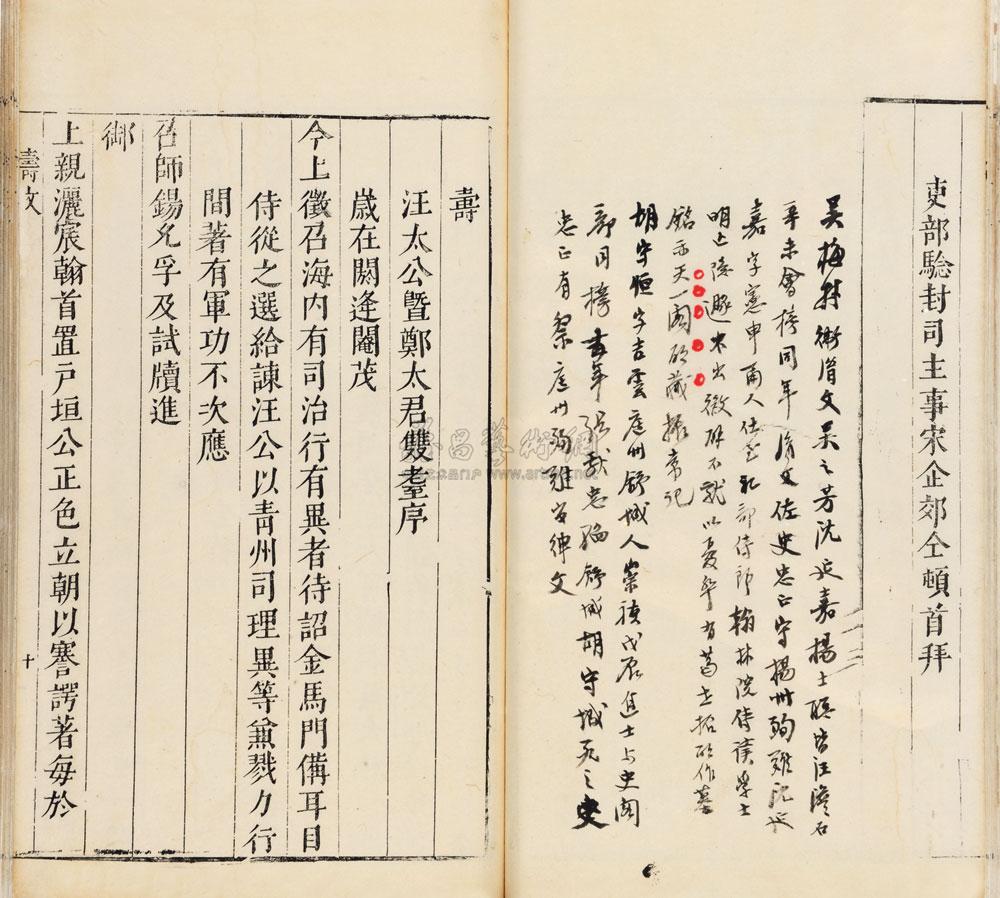 吏部騐封司主事宋企郊仝頓首拜
吳梅村衛胤文吳之芳沈延嘉楊士聰皆汪澹石
辛未會榜同年胤文佐史忠正守揚州殉難沈延
嘉字憲申甬人仕至礼部侍郎翰林院侍讀學士
明亡隱遯未出徵辟不就以卒有葛世振所作墓
銘天一閣所藏振常記
胡守恒字吉雲廬州舒城人崇禎戊辰進士与史閣
部同榜年張獻忠陷舒城胡守城死之史
忠正有祭廬州殉難官紳文
壽
汪太公暨鄭太君雙耋序
歳在閼逢閹茂
今上徵召海内有司治行有異者待詔金馬門備耳目
侍從之選給諫汪公以青州司理異等兼戮力行
間著有軍功不次應
召師錫允孚及試牘進
御
上親灑宸翰首置戶垣公正色立朝以謇諤著每於
壽文
十